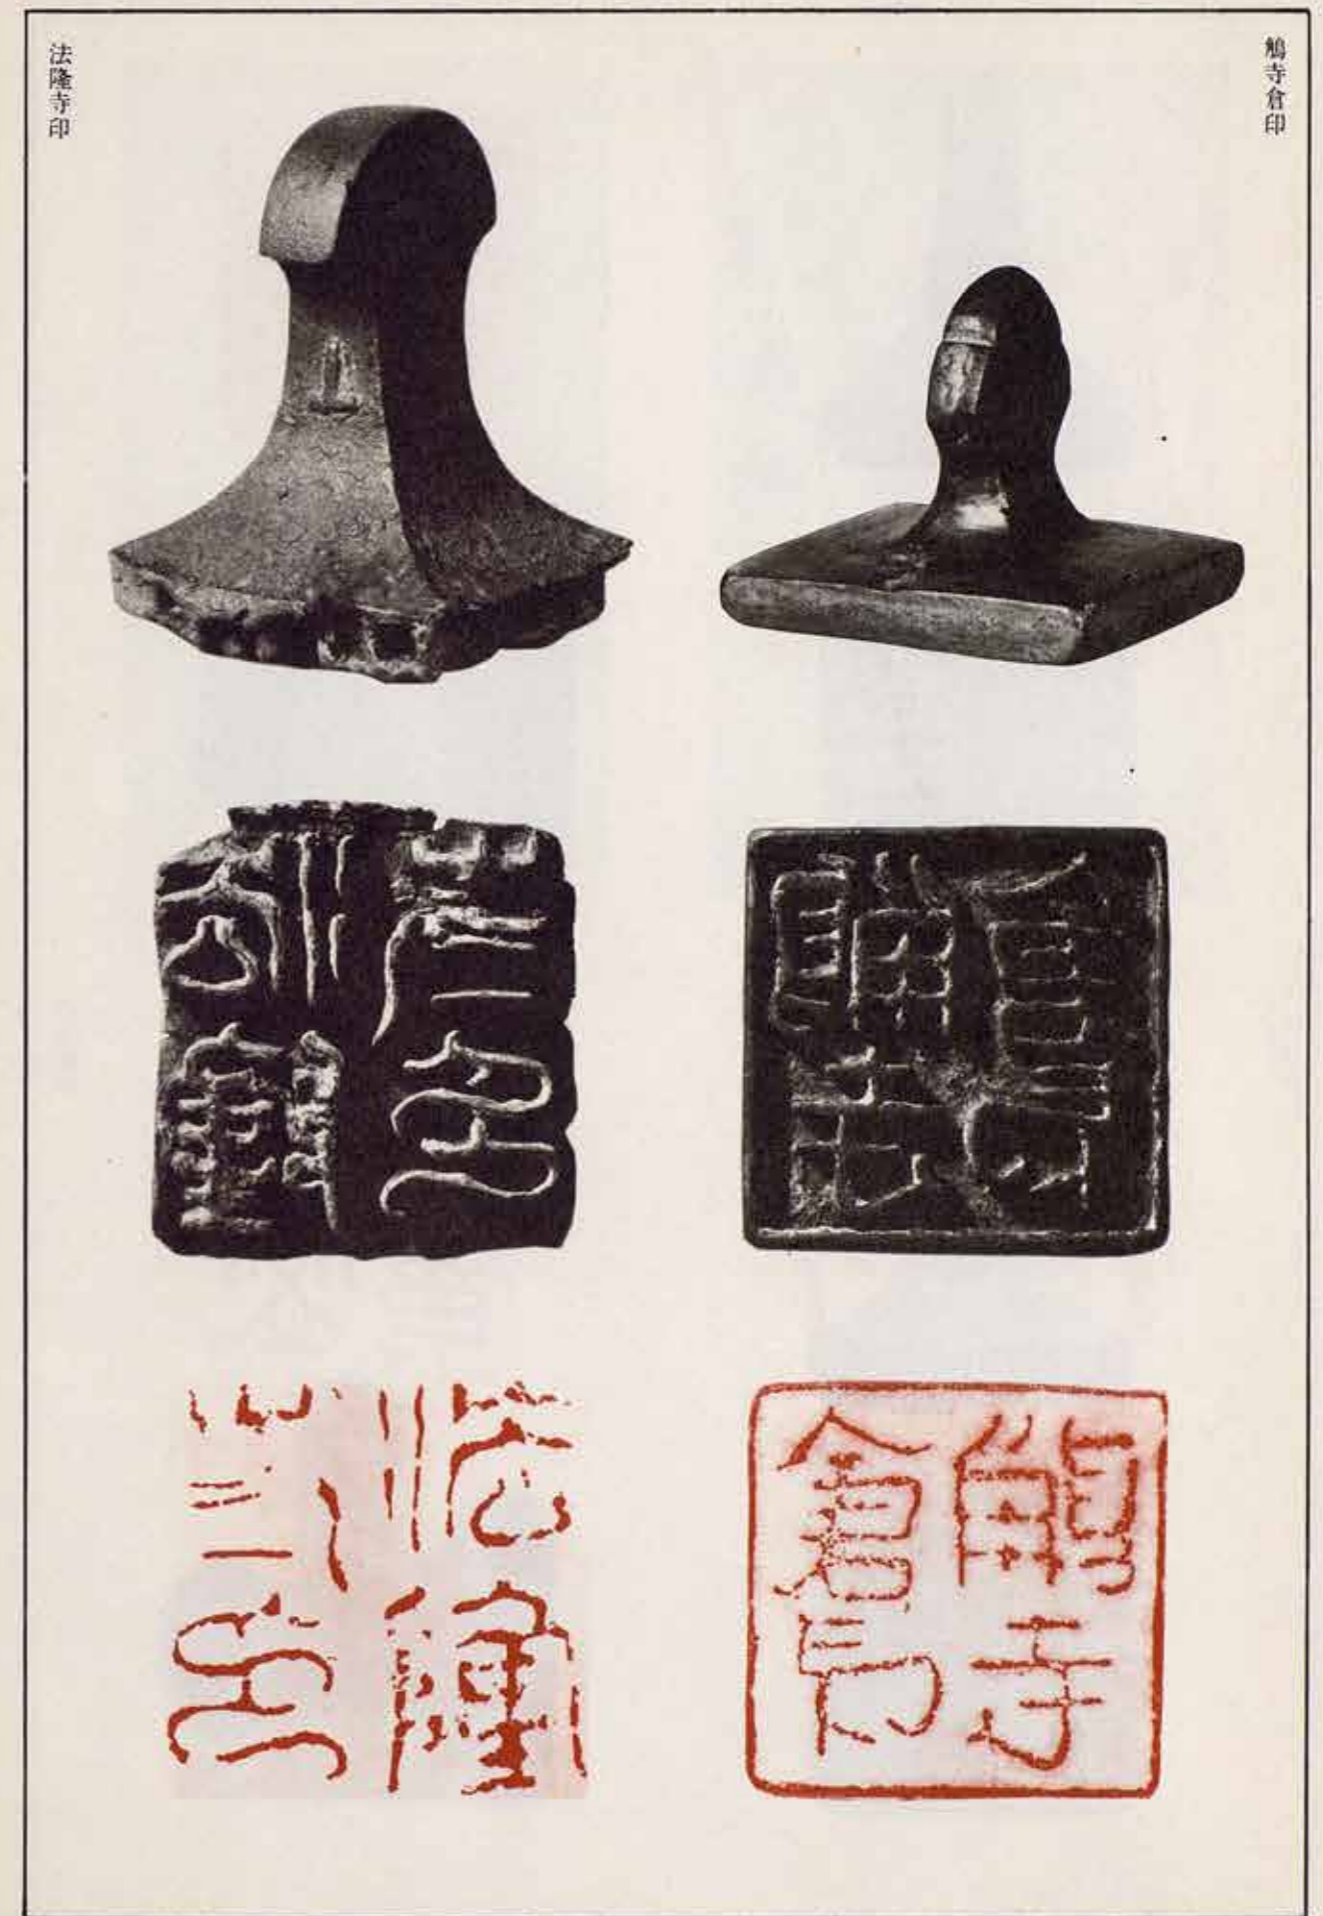 鵤寺倉印
法隆寺印
鵤寺
倉印
法隆
寺印